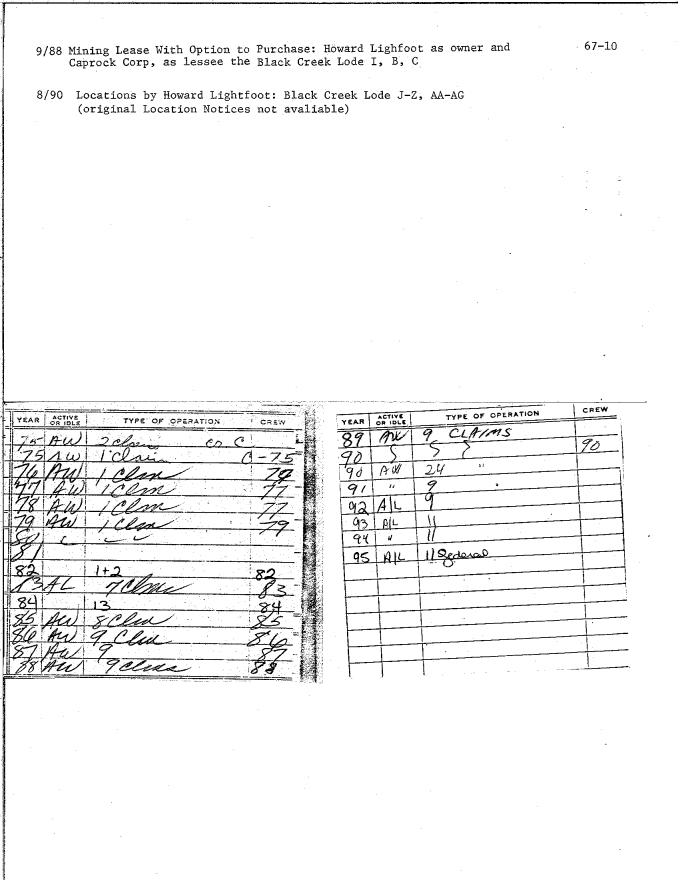 9/88 Mining Lease With Option to Purchase: Howard Lighfoot as owner and 67-10
Caprock Corp, as lessee the Black Creek Lode I, B, C
8/90 Locations by Howard Lightfoot: Black Creek Lode J-Z, AA-AG
(original Location Notices not avaliable)
YEAR ACTIVE OR IDLE TYPE OF OPERATION CREW
75 AW 2 co C
75 AW 1 Claim C-75
76 AW 1 Clm
77 AW 1 Clm 77
78 AW 1 Clm 77
79 AW 1 Clm 79
80
81
82 1+2 82
83 AL 7 Clms 83
84 13 84
85 AW 8 Clm 85
86 AW 9 Clm 86
87 AW 9 87
88 AW 9 Clms 88
YEAR ACTIVE OR IDLE TYPE OF OPERATION CREW
89 AW 9 CLAIMS
90 90
90 AW 24 "
91 " 9 "
92 A/L 9
93 A/L 11
94 " 11
95 A/L 11 Federal